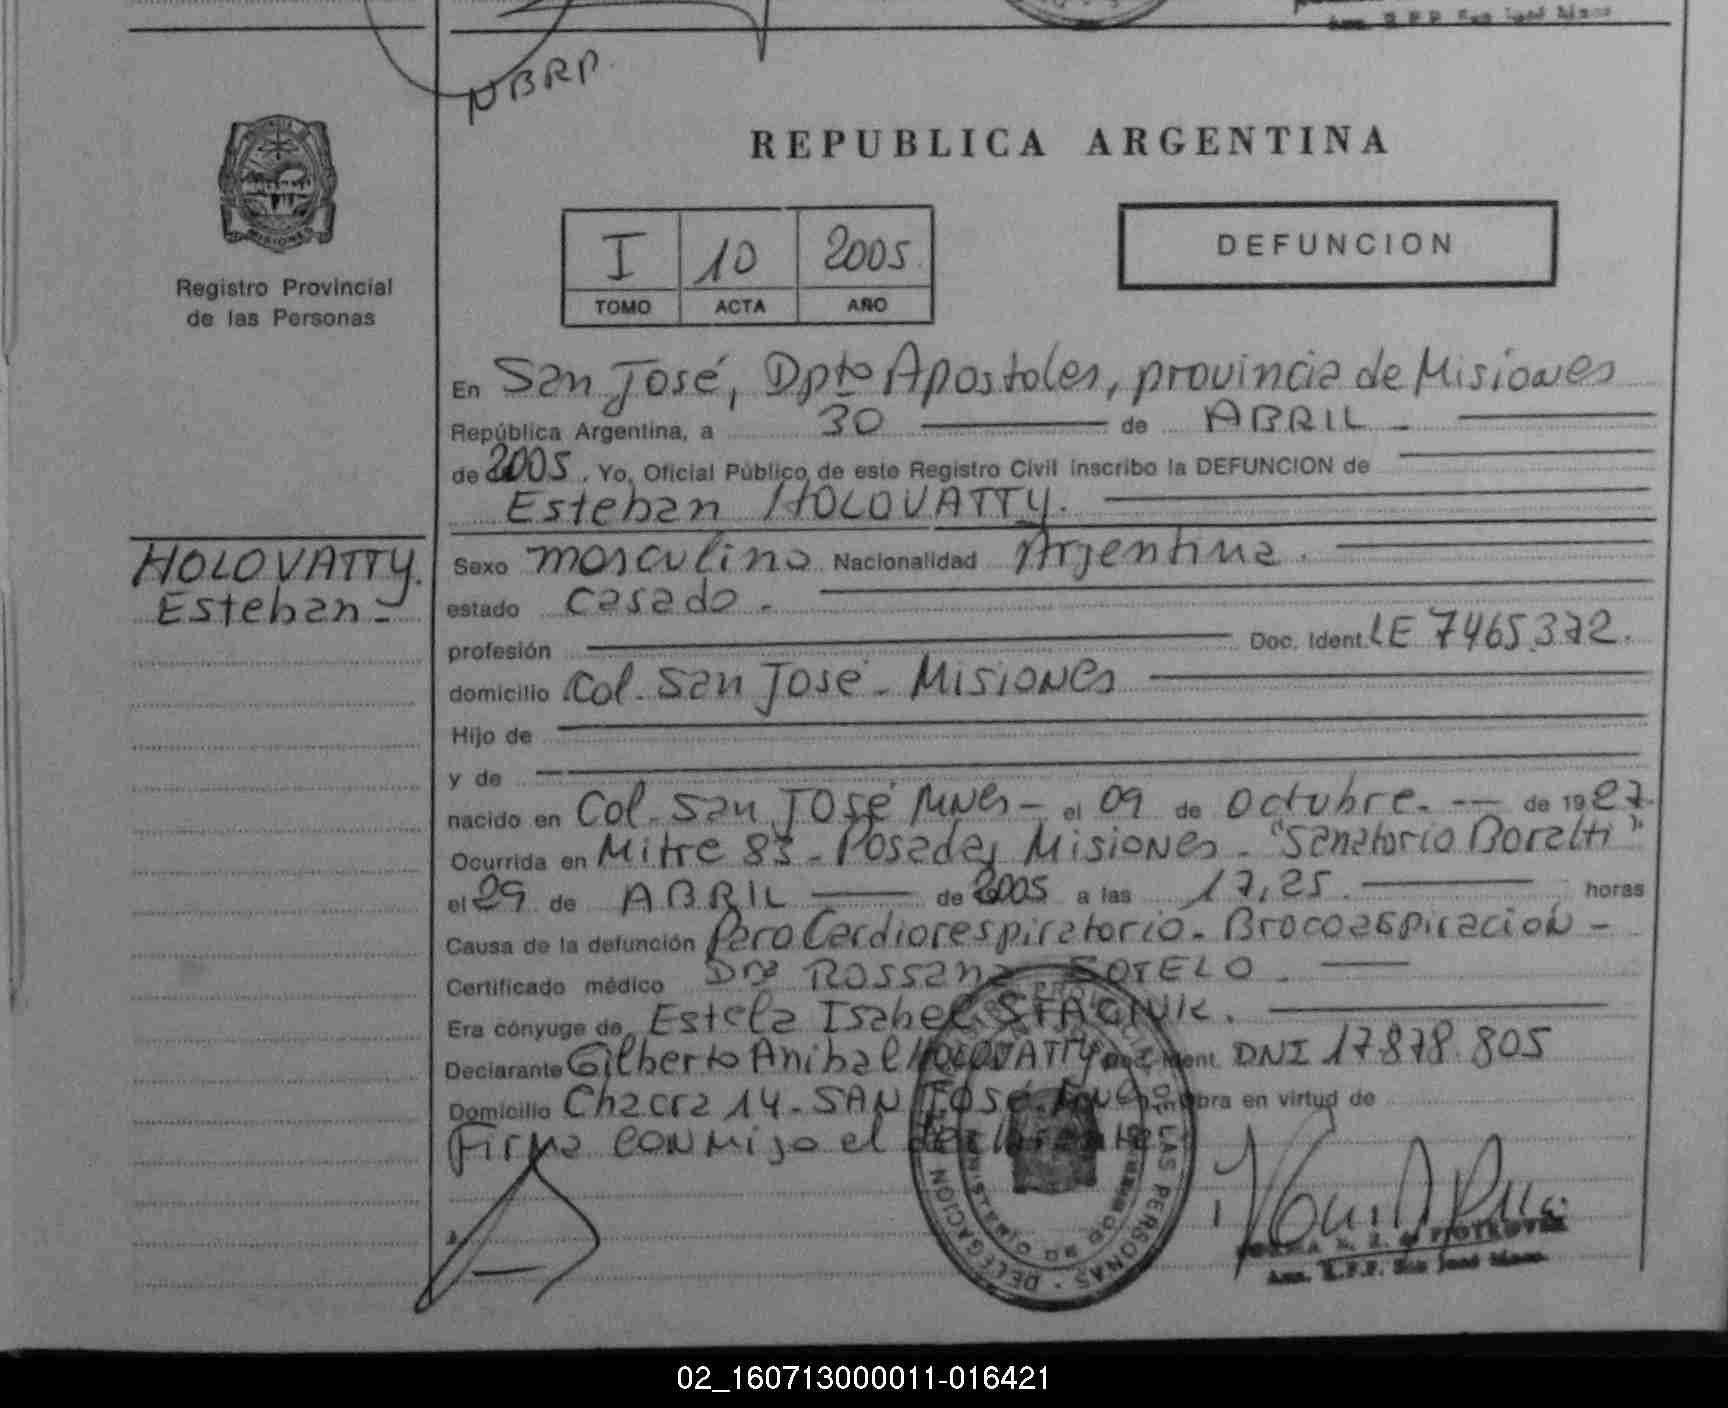 NBRP.
REPUBLICA ARGENTINA
Registro Provincial
de las Personas
I 10 2005
TOMO ACTA AÑO
DEFUNCION
En San José, Dpto Apostoles, provincia de Misiones
República Argentina, a 30 de ABRIL
de 2005. Yo, Oficial Público de este Registro Civil inscribo la DEFUNCION de
Esteban HOLOVATTY.
HOLOVATTY.
Esteban -
Sexo masculino Nacionalidad Argentina.
estado casado.
profesión Doc. Ident. LE 7465.372.
domicilio Col. San José - Misiones
Hijo de
y de
nacido en Col. San José Mnes - el 09 de Octubre. de 1927.
Ocurrida en Mitre 83 - Posadas Misiones - "Sanatorio Boratti"
el 29 de ABRIL de 2005 a las 17,25. horas
Causa de la defunción Paro Cardiorespiratorio - Brocoaspiracion -
Certificado médico Dra ROSSANA SOTELO.
Era cónyuge de Estela Isabel
Declarante Gilberto Anibal HOLOVATTY Doc. Ident. DNI 17878.805
Domicilio Chacra 14 - SAN José. Mnes obra en virtud de
Firma CONMIGO el declarante
DELEGACION LAS PERSONAS
MISIONES
San José Mnes.
02_160713000011-016421